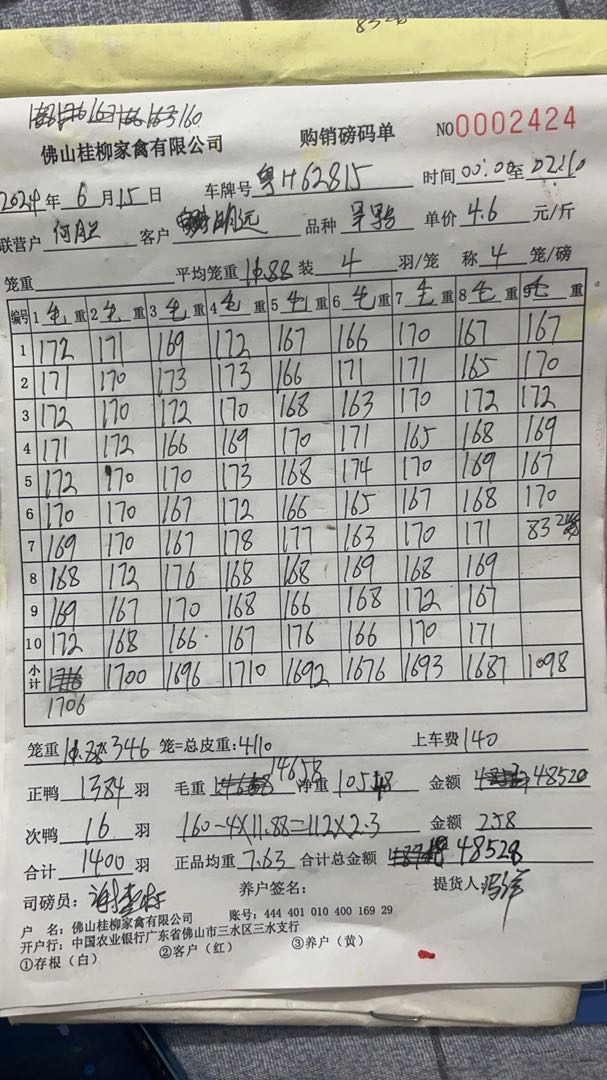 163 160
佛山桂柳家禽有限公司 购销磅码单 NO 0002424
2024年 6月15日 车牌号 粤H62815 时间 00:00 至 02:10
联营户 何 客户 明远 品种 单价 4.6 元/斤
笼重 平均笼重 11.88 装 4 羽/笼 称 4 笼/磅
编号 1毛重 2毛重 3毛重 4毛重 5毛重 6毛重 7毛重 8毛重 9毛重
1 172 171 169 172 167 166 170 167 167
2 171 170 173 173 166 171 171 165 170
3 172 170 172 170 168 163 170 172 172
4 171 172 166 169 170 171 165 168 169
5 172 170 170 173 168 174 170 169 167
6 170 170 167 172 166 165 167 168 170
7 169 170 167 178 177 163 170 171 83 2笼
8 168 172 176 168 168 169 168 169
9 169 167 170 168 166 168 172 167
10 172 168 166 167 176 166 170 171
小计 1700 1696 1710 1692 1676 1693 1687 1098
1706
笼重 11.88×346 笼=总皮重:4110 上车费 140
正鸭 1384 羽 毛重 14658 净重 10548 金额 48520
次鸭 16 羽 160-4×11.88=112×2.3 金额 258
合计 1400 羽 正品均重 7.63 合计总金额 48528
司磅员: 养户签名: 提货人:
户 名: 佛山桂柳家禽有限公司 账号: 444 401 010 400 169 29
开户行: 中国农业银行广东省佛山市三水区三水支行
①存根（白） ②客户（红） ③养户（黄）